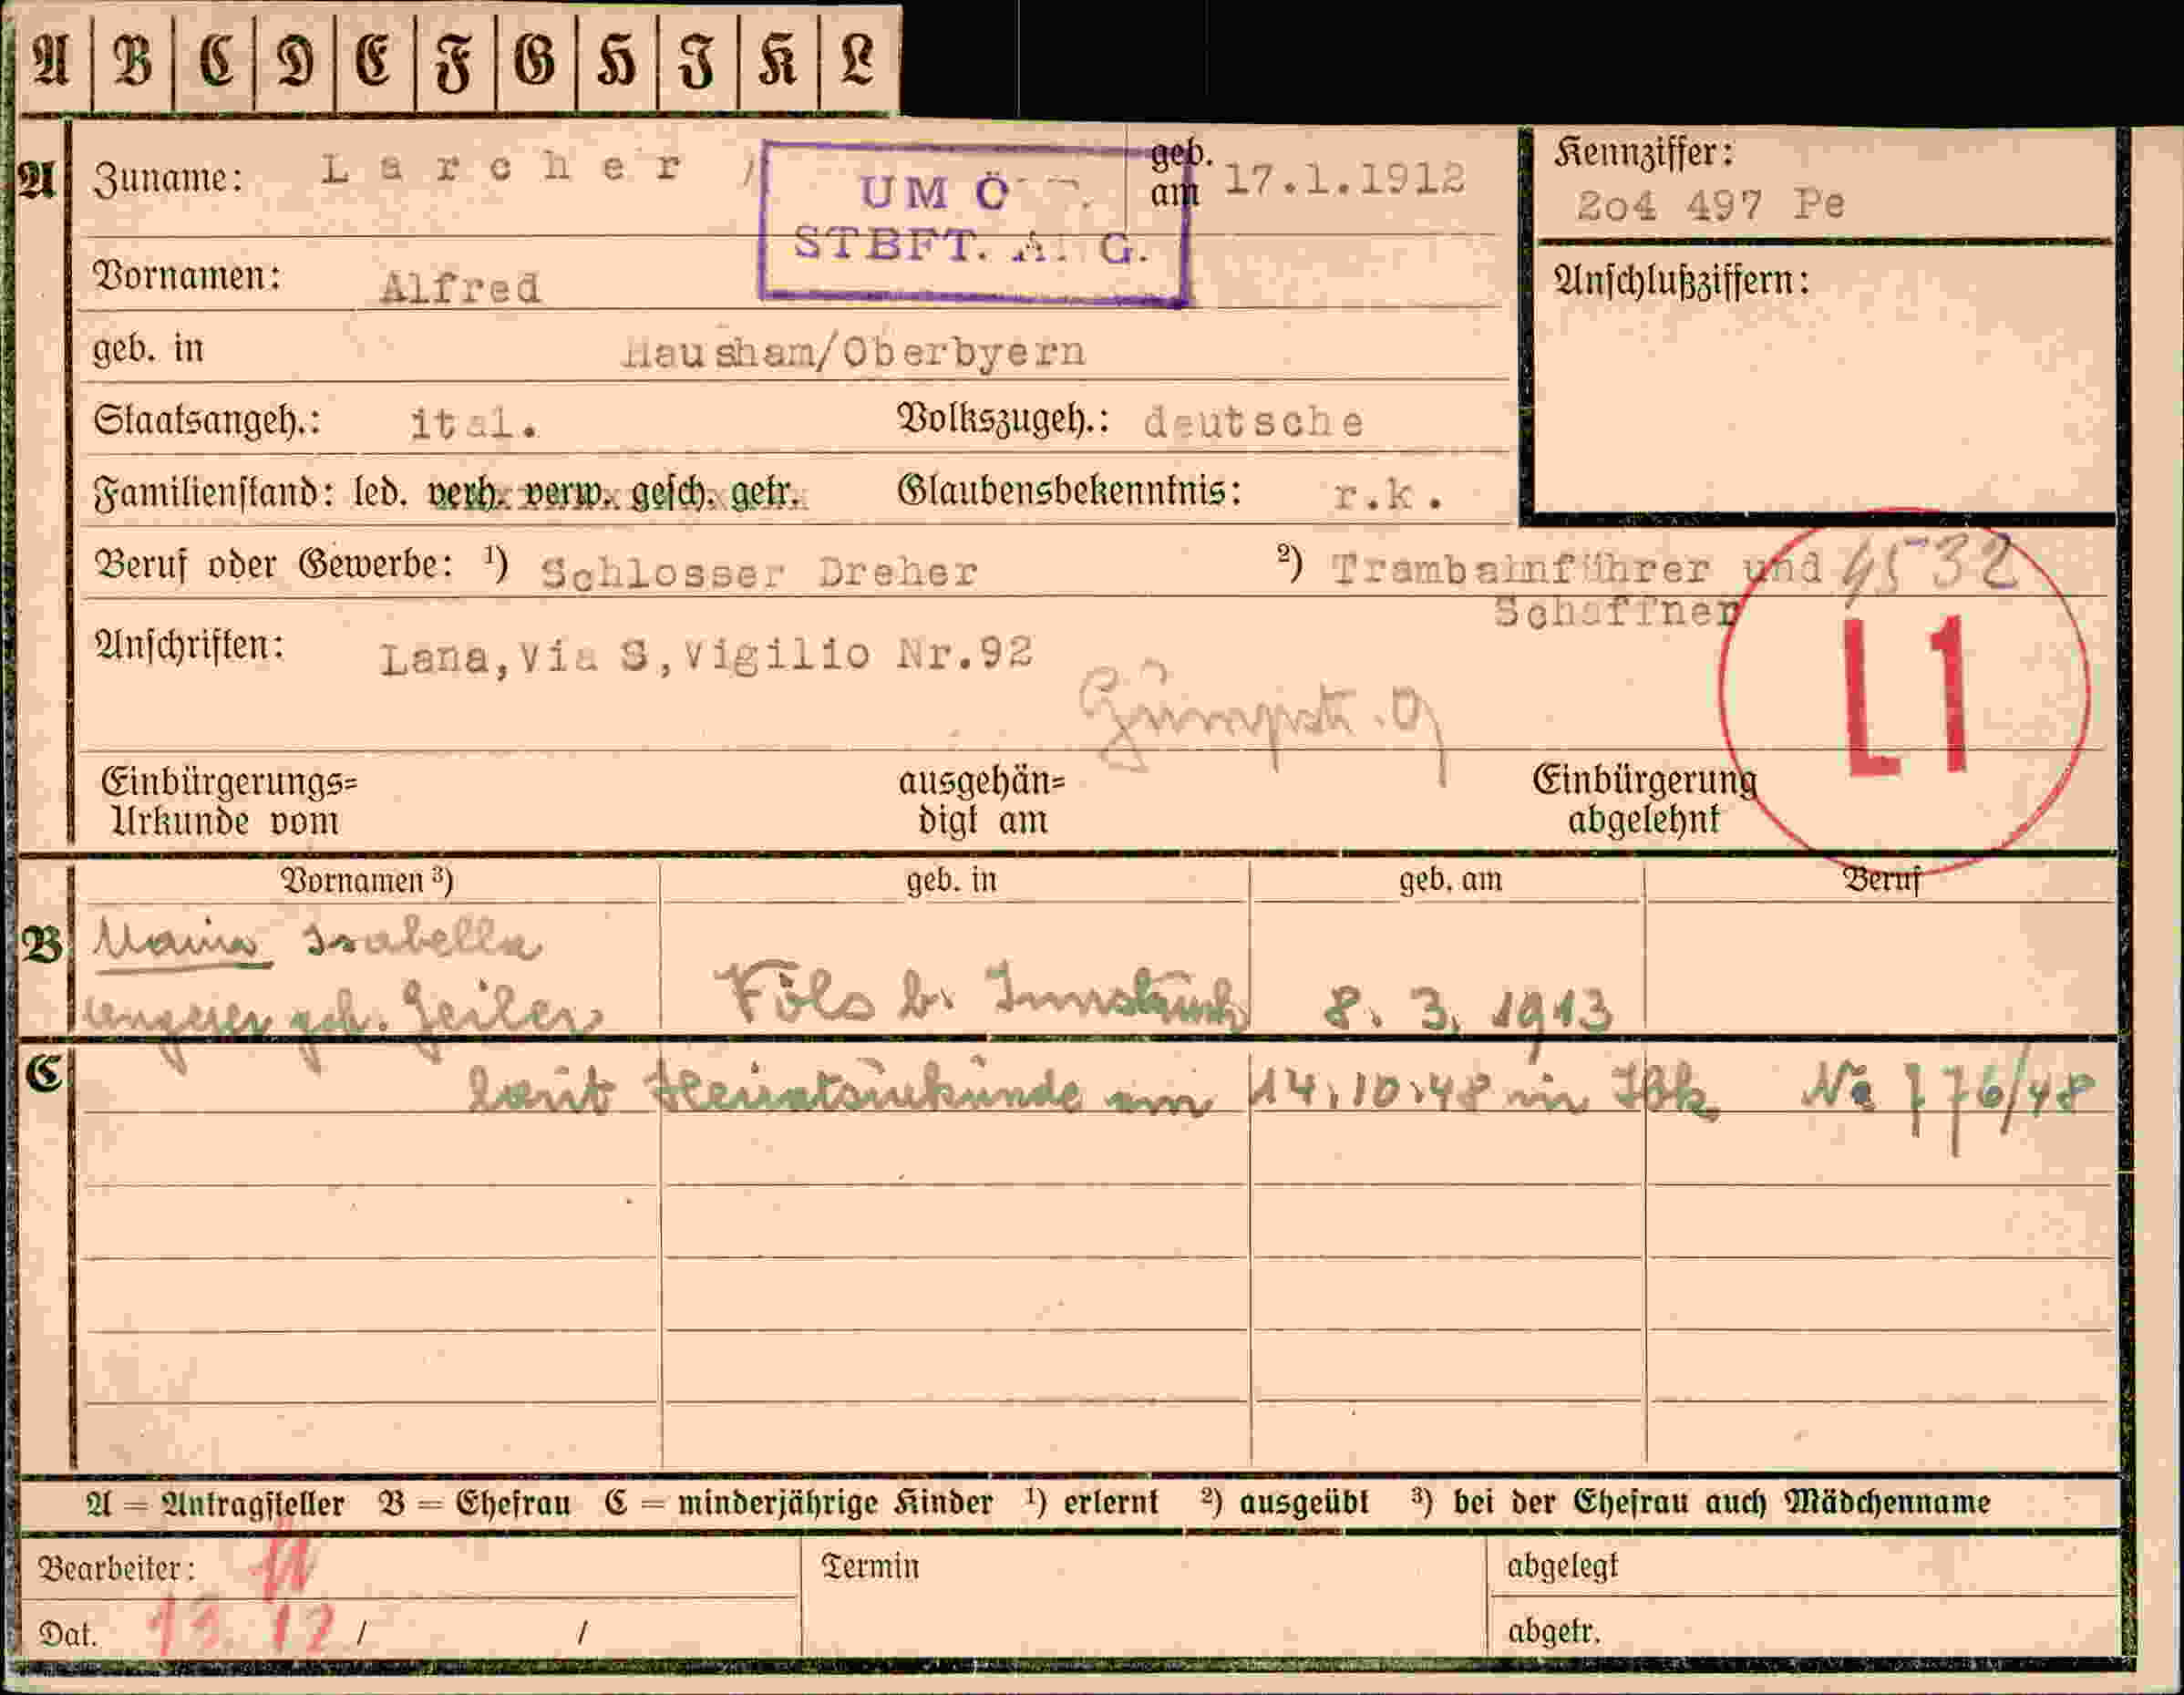 A B C D E F G H I K L
A Zuname: Larcher geb. am 17.1.1912 Kennziffer:
UM Ö
STBFT. A. G.
204 497 Pe
Vornamen: Alfred Anschlußziffern:
geb. in Hausham/Oberbyern
Staatsangeh.: ital. Volkszugeh.: deutsche
Familienstand: led. verh. verw. gesch. getr. Glaubensbekenntnis: r.k.
Beruf oder Gewerbe: ¹) Schlosser Dreher ²) Trambahnführer und 4532
Schaffner
Anschriften: Lana,Via S,Vigilio Nr.92
L1
Einbürgerungs= ausgehän= Einbürgerung
Urkunde vom digt am abgelehnt
Vornamen ³) geb. in geb. am Beruf
B Maria Isabella
geb. Geiler Völs b. Innsbruck 8. 3. 1913
C laut Heiratsurkunde am 14.10.48 in Ibk Nr 776/48
A = Antragsteller B = Ehefrau C = minderjährige Kinder ¹) erlernt ²) ausgeübt ³) bei der Ehefrau auch Mädchenname
Bearbeiter: Termin abgelegt
Dat. 13. 12 / / abgetr.